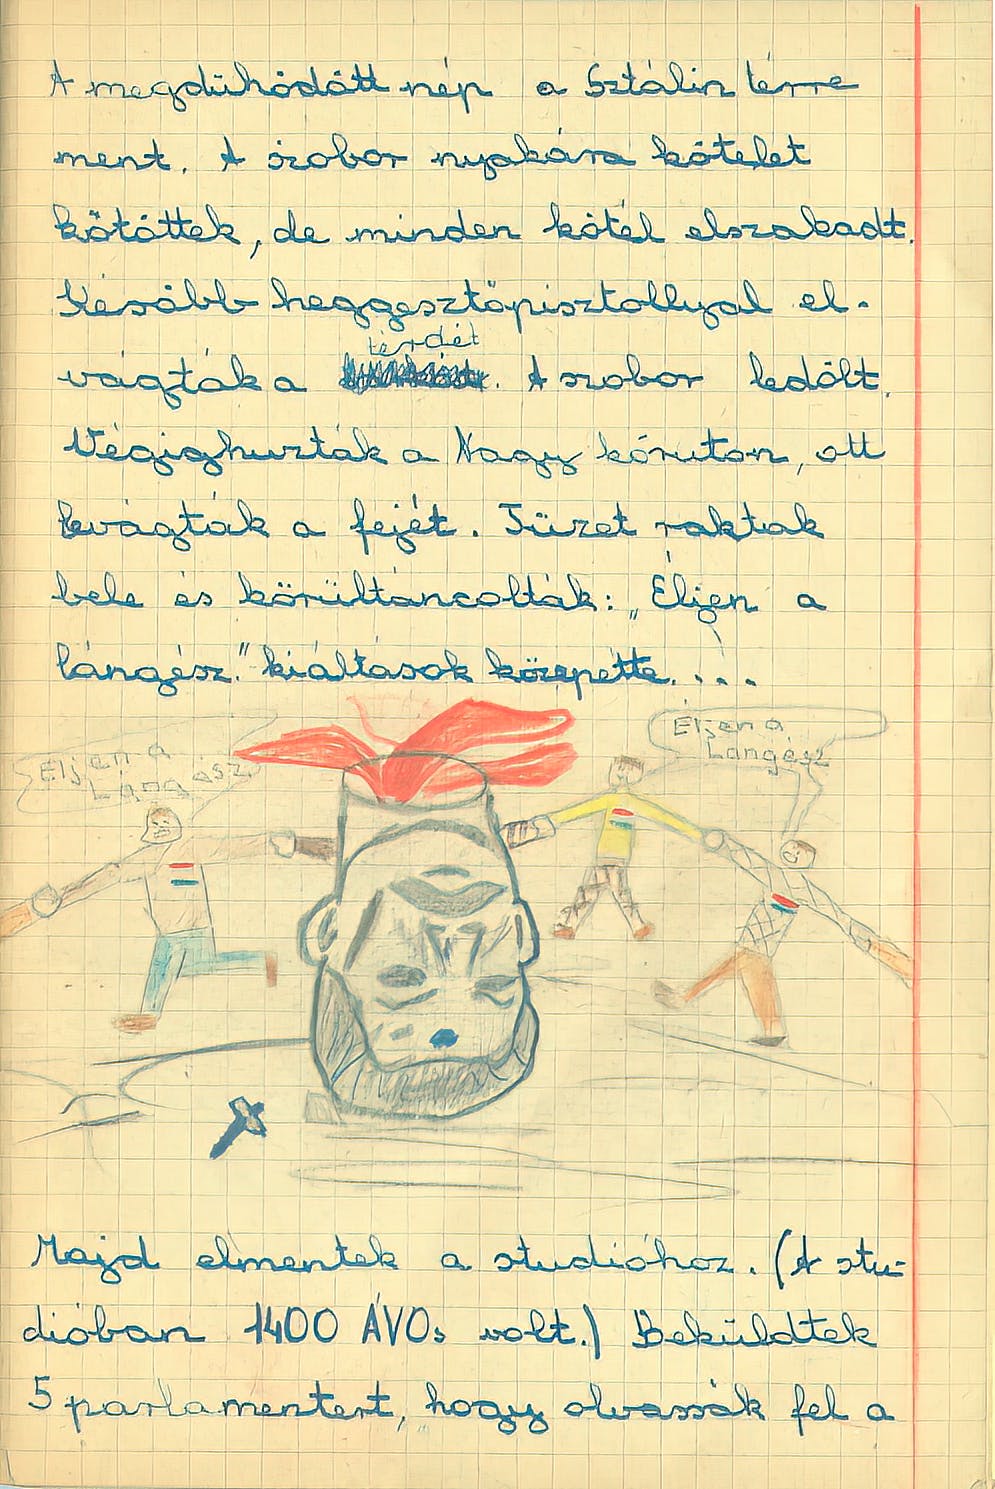 A megdühödött nép a Sztálin térre
ment. A szobor nyakára kötelet
kötöttek, de minden kötél elszakadt.
Később heggesztőpisztollyal el-
térdét
vágták a . A szobor ledőlt.
Végighurták a Nagy köruton, ott
levágták a fejét. Tüzet raktak
bele és körültáncolták: „Éljen a
lángész." kiáltások közepette. . . .
Éljen a
Lángész
Éljen a
Lángész
Majd elmentek a studióhoz. (A stu-
dióban 1400 ÁVOs volt.) Beküldtek
5 parlamentert, hogy olvassák fel a